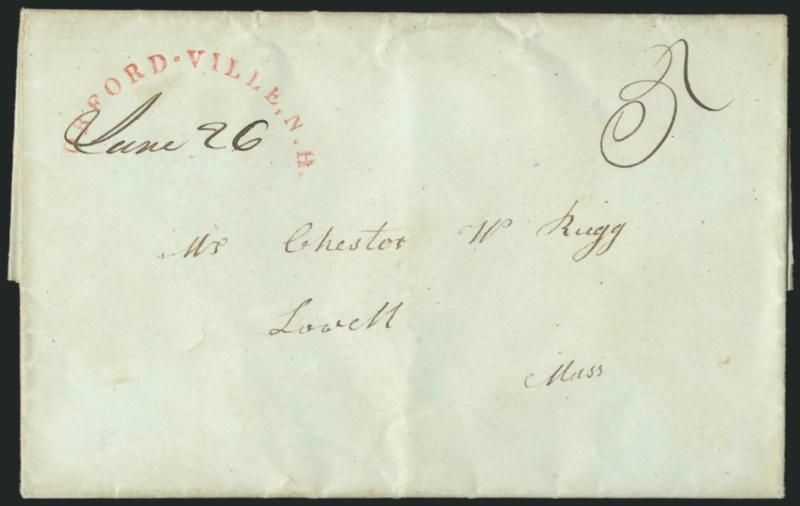 ORFORD-VILLE, N.H.
June 26
5
Mr Chester W Rugg
Lowell
Mass